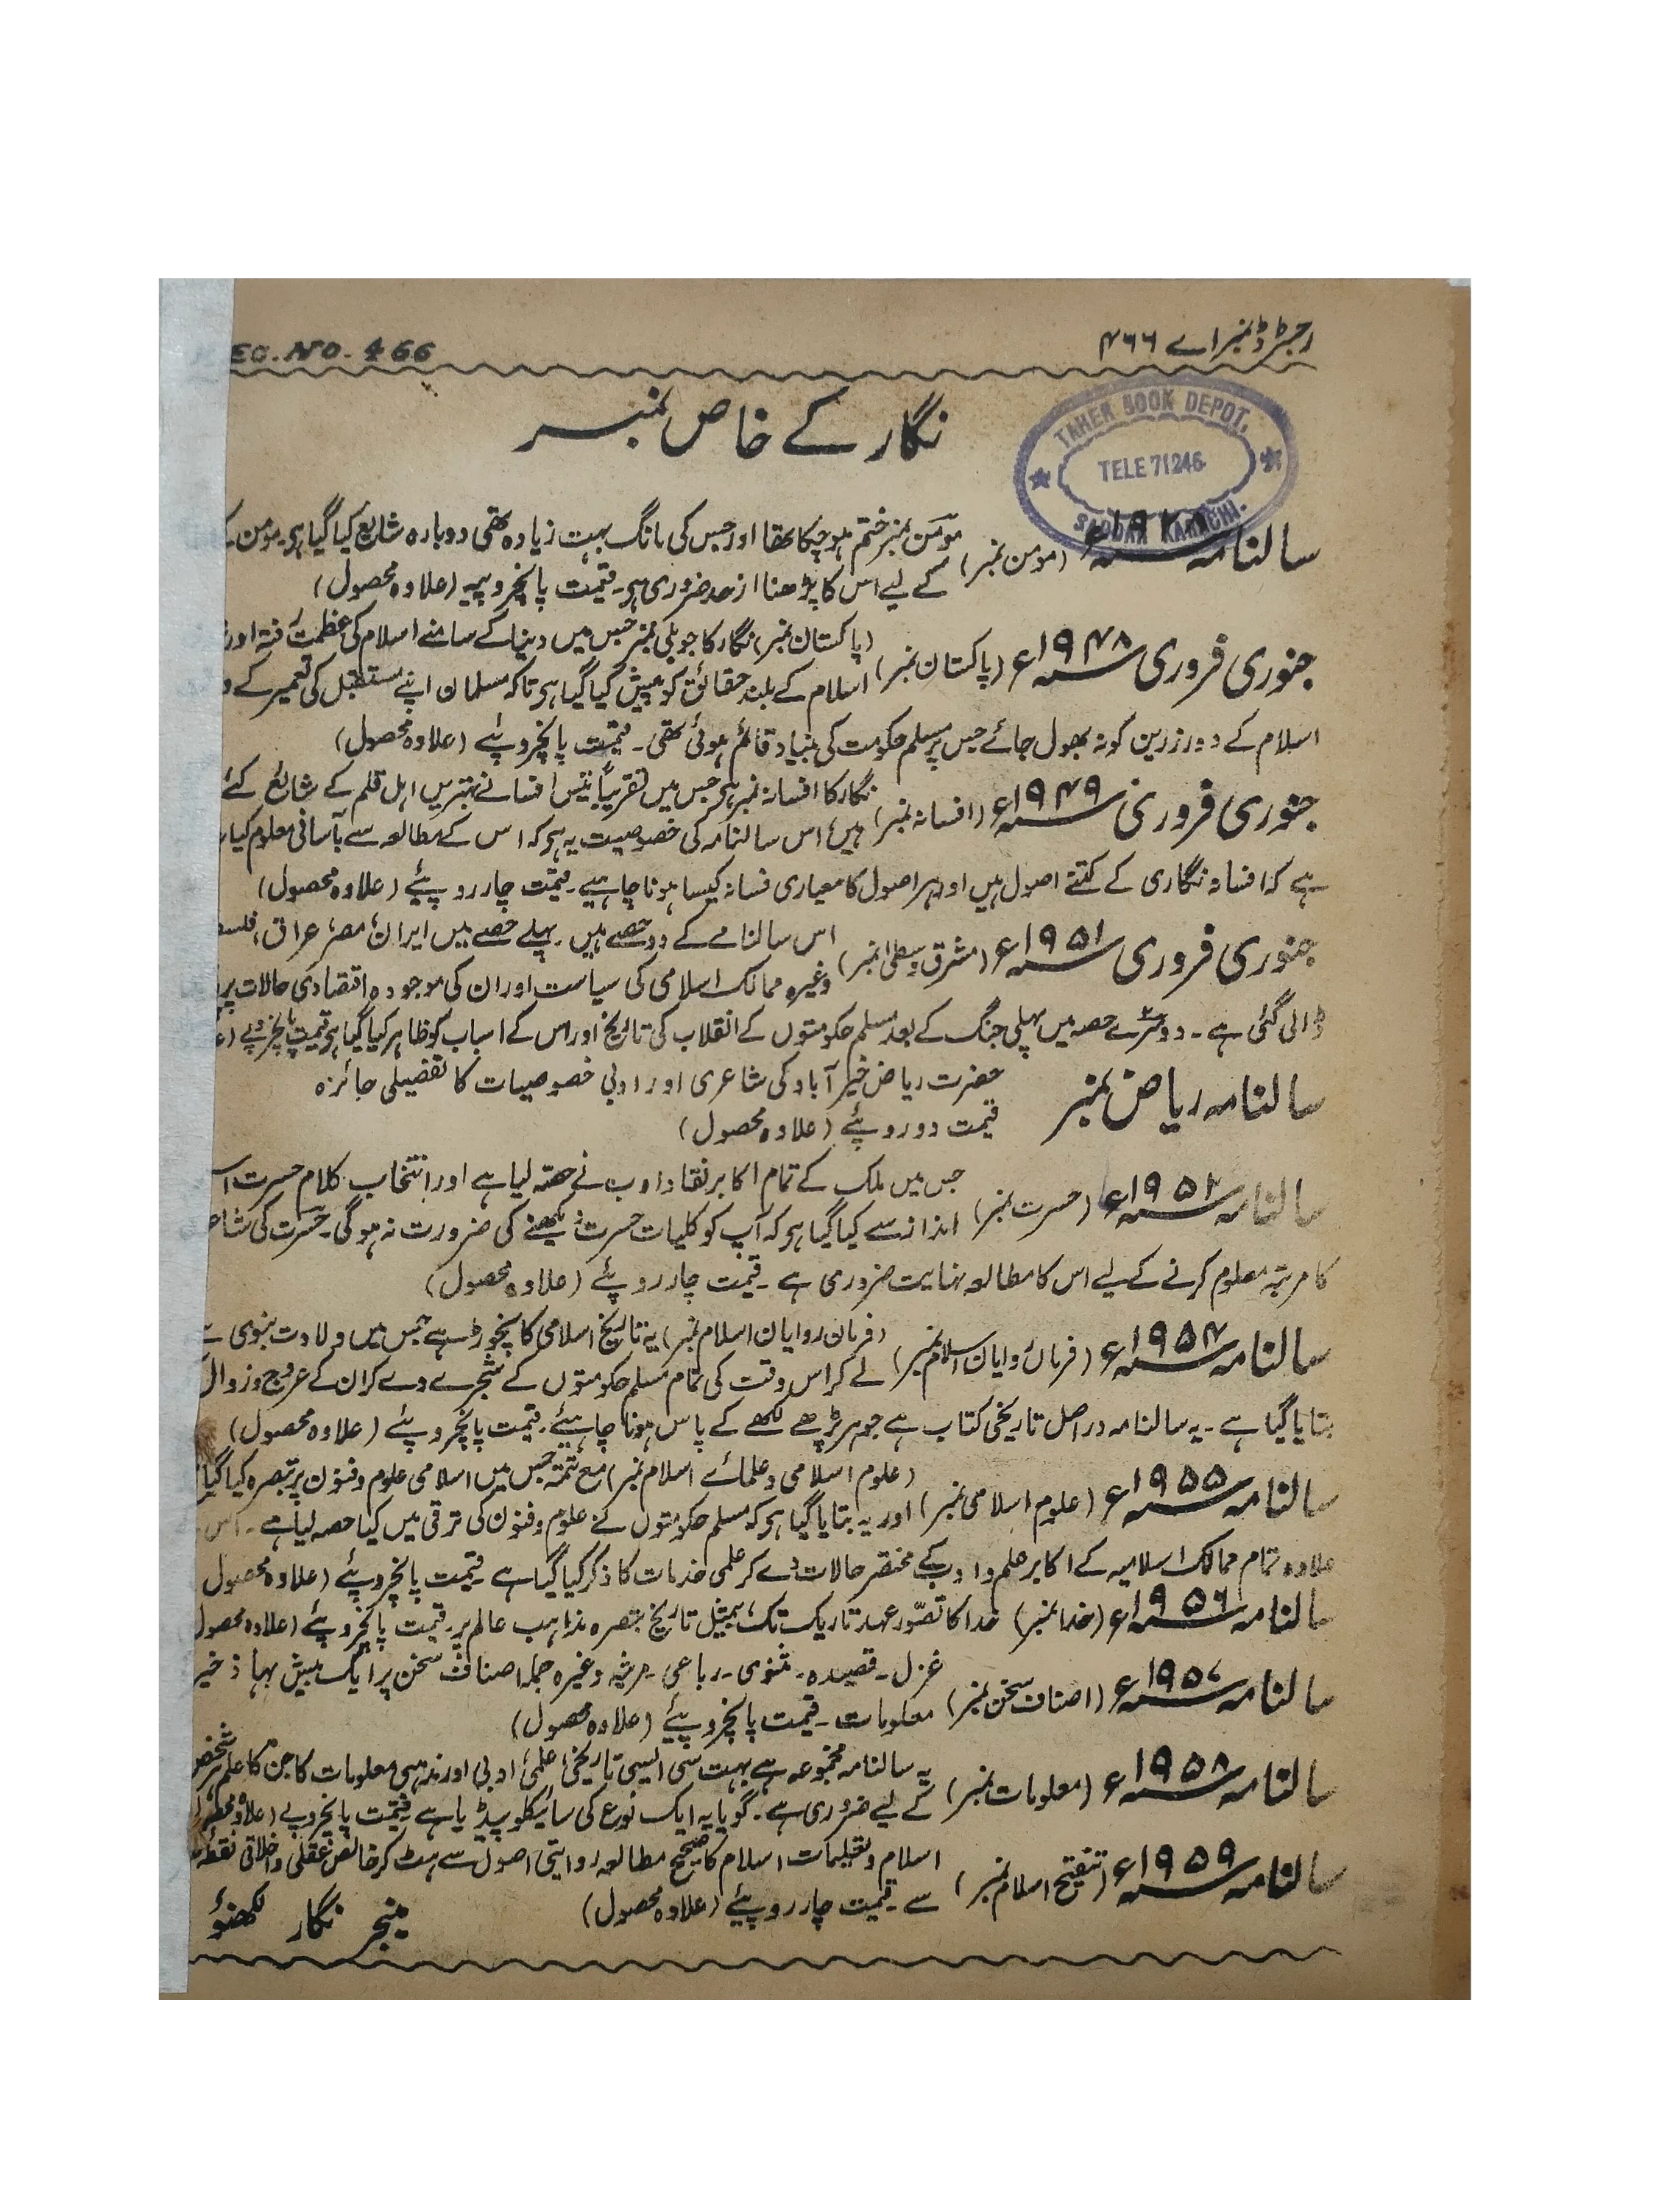 رجسٹرڈ نمبر اے ۴۶۶
EG. NO. 466
نگار کے خاص نمبر
TAHER BOOK DEPOT.
TELE 71246
SADDAR KARACHI.
سالنامہ (مومن نمبر) مومن نمبر ختم ہو چکا تھا اور جس کی مانگ بہت زیادہ تھی دوبارہ شایع کیا گیا ہی۔ مومن
کے لیے اس کا پڑھنا از حد ضروری ہی۔ قیمت پانچروپیہ (علاوہ محصول)
جنوری فروری ۱۹۴۸ء (پاکستان نمبر) (پاکستان نمبر) نگار کا جوبلی نمبر جس میں دنیا کے سامنے اسلام کی عظمت رفتہ اور
اسلام کے بلند حقائق کو پیش کیا گیا ہی تاکہ مسلمان اپنے مستقبل کی تعمیر کے و
اسلام کے دور زرین کو نہ بھول جائے جس پر مسلم حکومت کی بنیاد قائم ہوئی تھی۔ قیمت پانچروپئے (علاوہ محصول)
جنوری فروری ۱۹۴۹ء (افسانہ نمبر) نگار کا افسانہ نمبر ہی جس میں تقریباً بتیس افسانے بہترین اہل قلم کے شائع کئے
ہیں، اس سالنامہ کی خصوصیت یہ ہی کہ اس کے مطالعہ سے بآسانی معلوم کیا
ہے کہ افسانہ نگاری کے کتنے اصول ہیں اور ہر اصول کا معیاری فسانہ کیسا ہونا چاہیے۔ قیمت چار روپئے (علاوہ محصول)
جنوری فروری ۱۹۵۱ء (مشرق وسطیٰ نمبر) اس سالنامے کے دو حصے ہیں۔ پہلے حصے میں ایران، مصر، عراق، فلسط
وغیرہ ممالک اسلامی کی سیاست اور ان کی موجودہ اقتصادی حالات پر
ڈالی گئی ہے۔ دوسرے حصہ میں پہلی جنگ کے بعد مسلم حکومتوں کے انقلاب کی تاریخ اور اس کے اسباب کو ظاہر کیا گیا ہی قیمت پانچروپے (ع
سالنامہ ریاض نمبر حضرت ریاض خیر آباد کی شاعری اور ادبی خصوصیات کا تفصیلی جائزہ
قیمت دو روپئے (علاوہ محصول)
سالنامہ ۱۹۵۲ء (حسرت نمبر) جس میں ملک کے تمام اکابر نقاد ادب نے حصّہ لیا ہے اور انتخاب کلام حسرت
انداز سے کیا گیا ہی کہ آپ کو کلیات حسرت دیکھنے کی ضرورت نہ ہوگی۔ حسرت کی شا
کا مرتبہ معلوم کرنے کے لیے اس کا مطالعہ نہایت ضروری ہے۔ قیمت چار روپئے (علاوہ محصول)
سالنامہ ۱۹۵۴ء (فرمانروایان اسلام نمبر) (فرمان روایان اسلام نمبر) یہ تاریخ اسلامی کا نچوڑ ہے جس میں ولادت نبوی سے
لے کر اس وقت کی تمام مسلم حکومتوں کے شجرے دے کر ان کے عروج و زوال
بتایا گیا ہے۔ یہ سالنامہ دراصل تاریخی کتاب ہے جو ہر پڑھے لکھے کے پاس ہونا چاہیئے۔ قیمت پانچروپئے (علاوہ محصول)
سالنامہ ۱۹۵۵ء (علوم اسلامی نمبر) (علوم اسلامی و علمائے اسلام نمبر) مع تتمّہ جس میں اسلامی علوم و فنون پر تبصرہ کیا گیا
اور یہ بتایا گیا ہی کہ مسلم حکومتوں نے علوم و فنون کی ترقی میں کیا حصہ لیا ہے۔ اس
علاوہ تمام ممالک اسلامیہ کے اکابر علم و ادب کے مختصر حالات دے کر علمی خدمات کا ذکر کیا گیا ہے۔ قیمت پانچروپئے (علاوہ محصول
سالنامہ ۱۹۵۶ء (خدا نمبر) خدا کا تصوّر عہد تاریک تک، بے مثیل تاریخ تبصرہ مذاہب عالم پر۔ قیمت پانچروپئے (علاوہ محصول
سالنامہ ۱۹۵۷ء (اصناف سخن نمبر) غزل۔ قصیدہ۔ مثنوی۔ رباعی۔ مرثیہ وغیرہ جملہ اصناف سخن پر ایک بیش بہا ذخیر
معلومات۔ قیمت پانچروپئے (علاوہ محصول)
سالنامہ ۱۹۵۸ء (معلومات نمبر) یہ سالنامہ مجموعہ ہے بہت سی ایسی تاریخی، علمی، ادبی اور مذہبی معلومات کا جن کا علم ہر شخص
کے لیے ضروری ہے۔ گویا یہ ایک نوع کی سائیکلوپیڈیا ہے قیمت پانچروپے (علاوہ محصول
سالنامہ ۱۹۵۹ء (تنقیح اسلام نمبر) اسلام و تعلیمات اسلام کا صحیح مطالعہ روایتی اصول سے ہٹ کر خالص عقلی و اخلاقی نقطہ
سے۔ قیمت چار روپیئے (علاوہ محصول)
منیجر نگار لکھنؤ